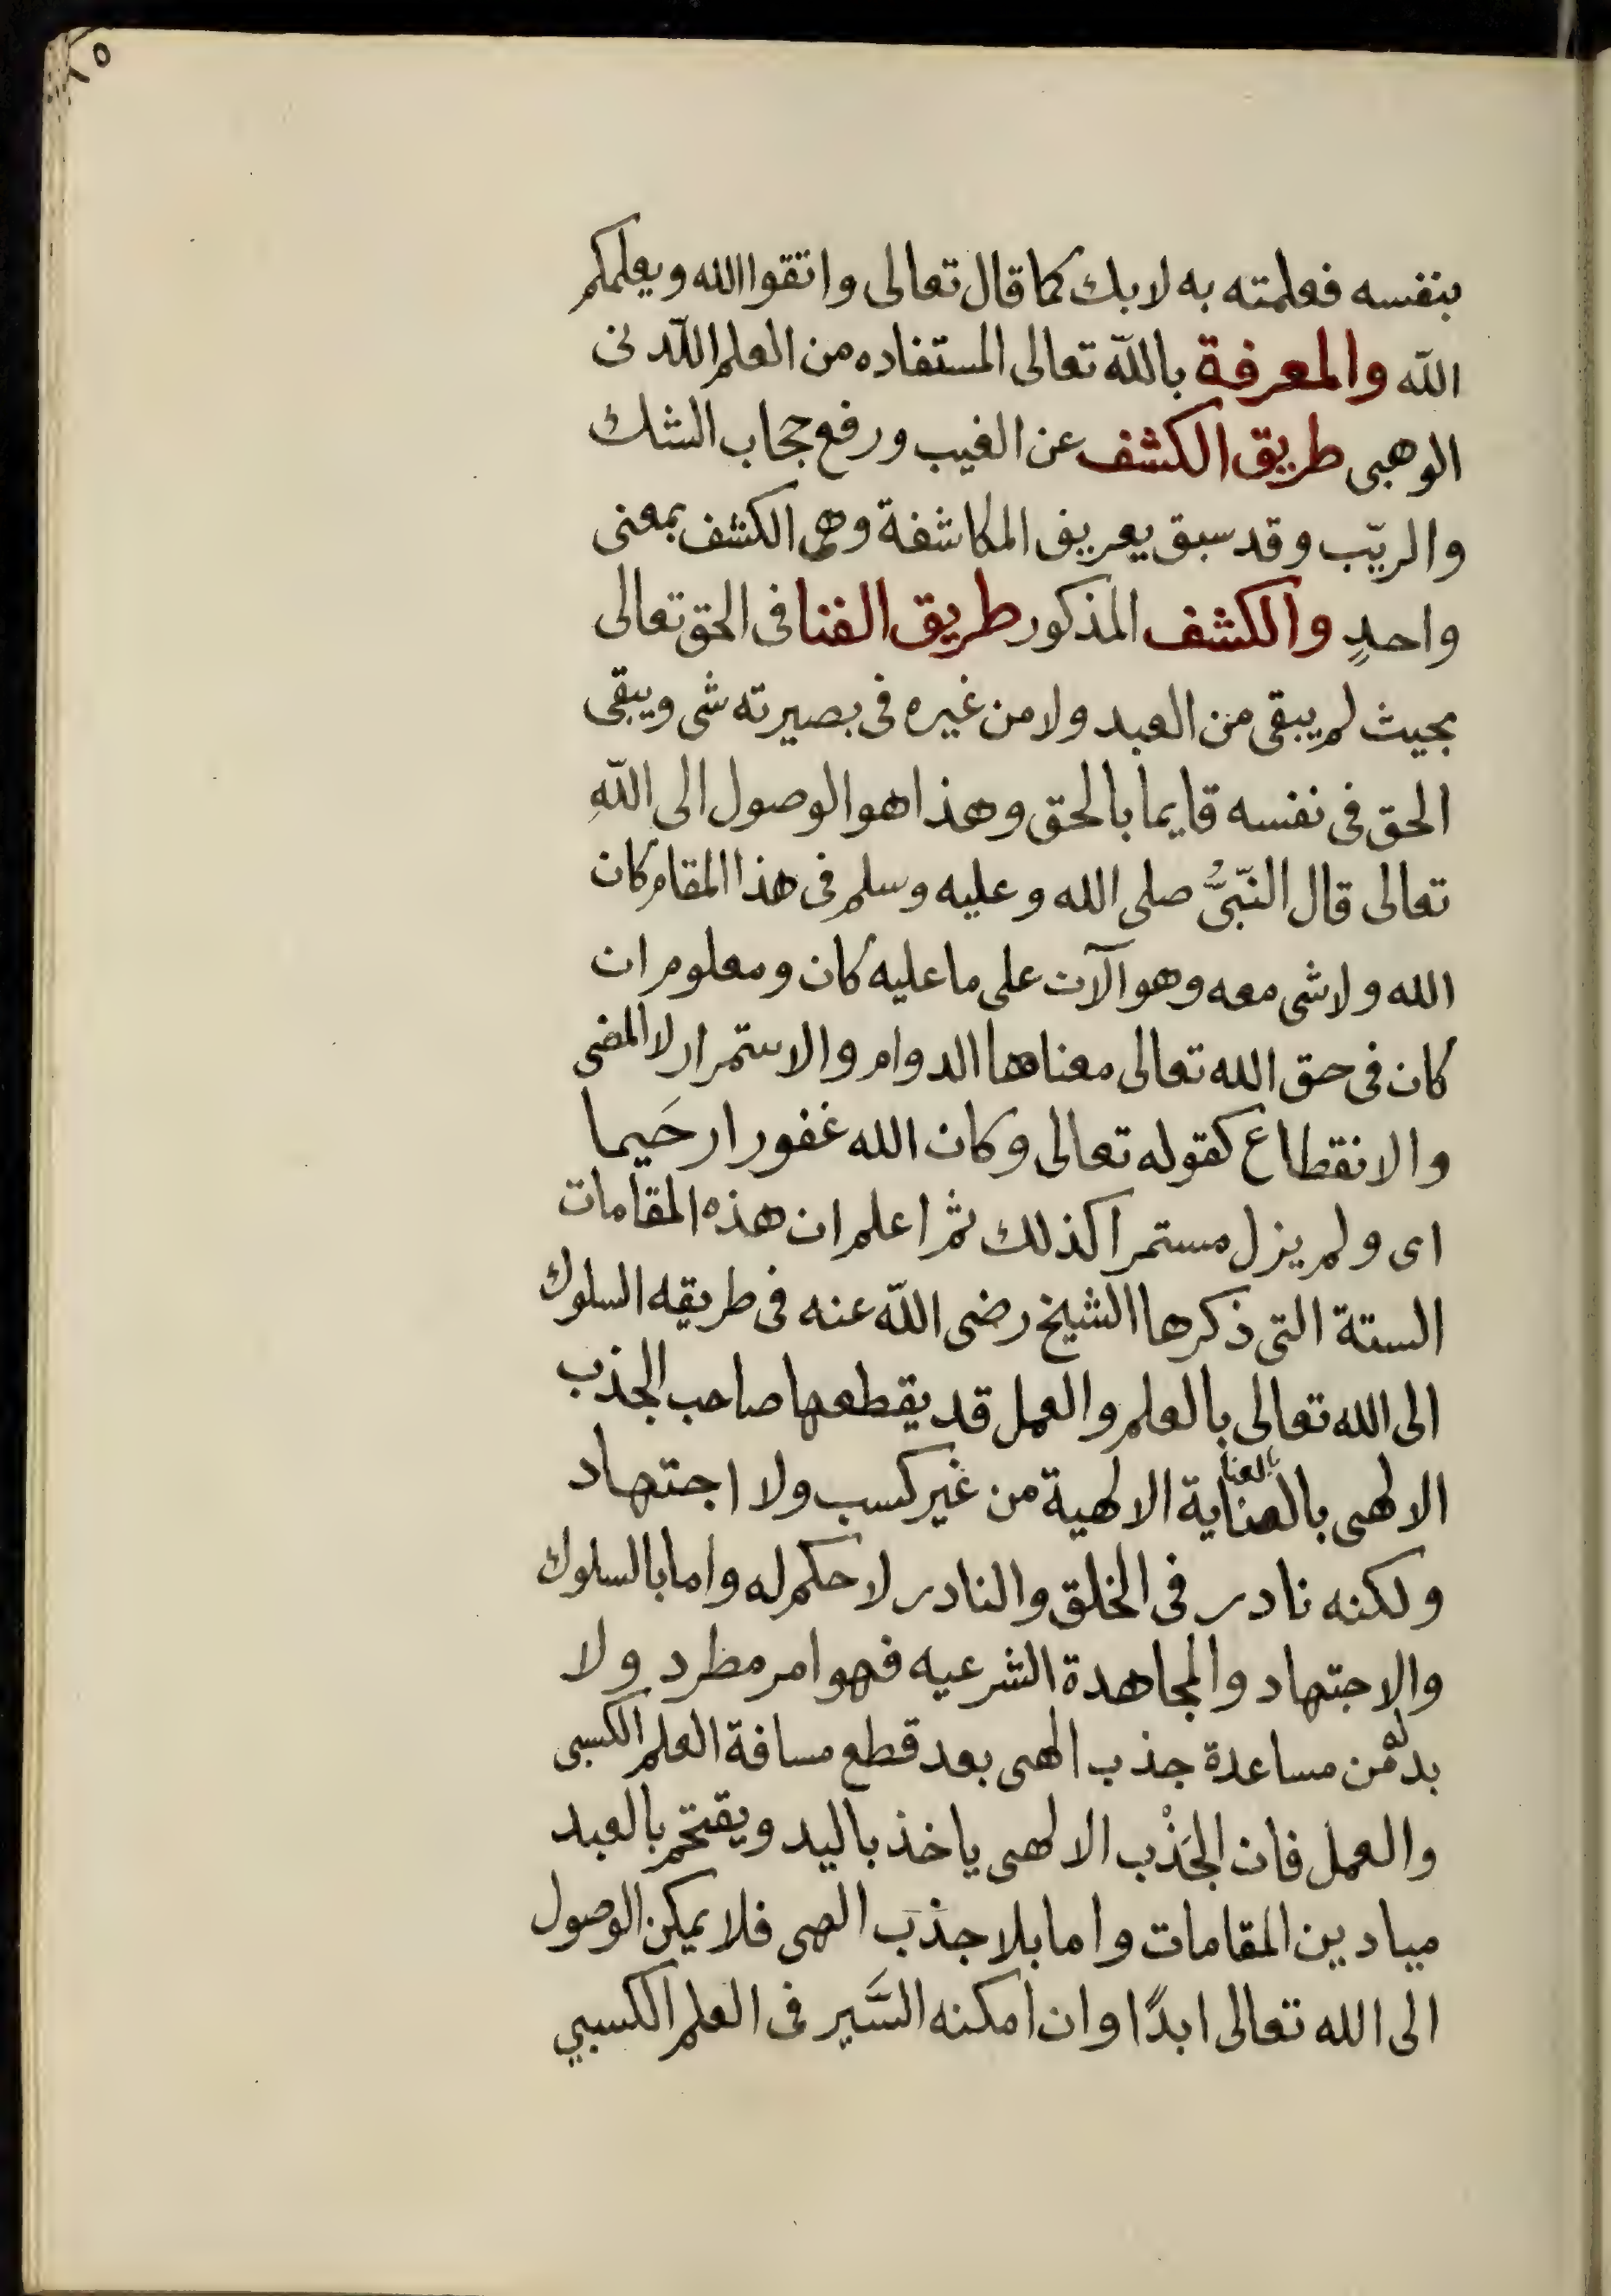 بنفسه فعلمته به لا بك كما قال تعالى واتقوا الله ويعلمكم
الله والمعرفة بالله تعالى المستفاده من العلم اللّدنى
الوهبى طريق الكشف عن الغيب ورفع حجاب الشك
والريّب وقد سبق يعريف المكاشفة وهى الكشف بمعنى
واحدٍ والكشف المذكور طريق الفنا فى الحق تعالى
بحيث لم يبقى من العبد ولا من غيره فى بصيرته شى ويبقى
الحق فى نفسه قايما بالحق وهذا هو الوصول الى اللهِ
تعالى قال النّبىُّ صلى الله وعليه وسلم فى هذا المقام كان
الله ولا شى معه وهو الآن على ما عليه كان ومعلوم ان
كان فى حق الله تعالى معناها الدوام والاستمرار لا المضى
والانقطاع كقوله تعالى وكان الله غفورا رحَيما
اى ولم يزل مستمرا كذلك ثم اعلم ان هذه المقامات
الستة التى ذكرها الشيخ رضى الله عنه فى طريقه السلوك
الى الله تعالى بالعلم والعمل قد يقطعها صاحب الجذب
الالهى بالعناية الالهية من غير كسب ولا اجتهاد
بالعنا
ولكنه نادر فى الخلق والنادر لا حكم له واما بالسلوك
والاجتهاد والمجاهدة الشرعيه فهو امر مطرد ولا
بد له من مساعدة جذب الهى بعد قطع مسافة العلم الكسبى
والعمل فان الجَذْب الالهى ياخذ باليد ويقتحم بالعبد
ميادين المقامات واما بلا جذب الهى فلا يمكن الوصول
الى الله تعالى ابدًا وان امكنه السَّير فى العلم الكسبي